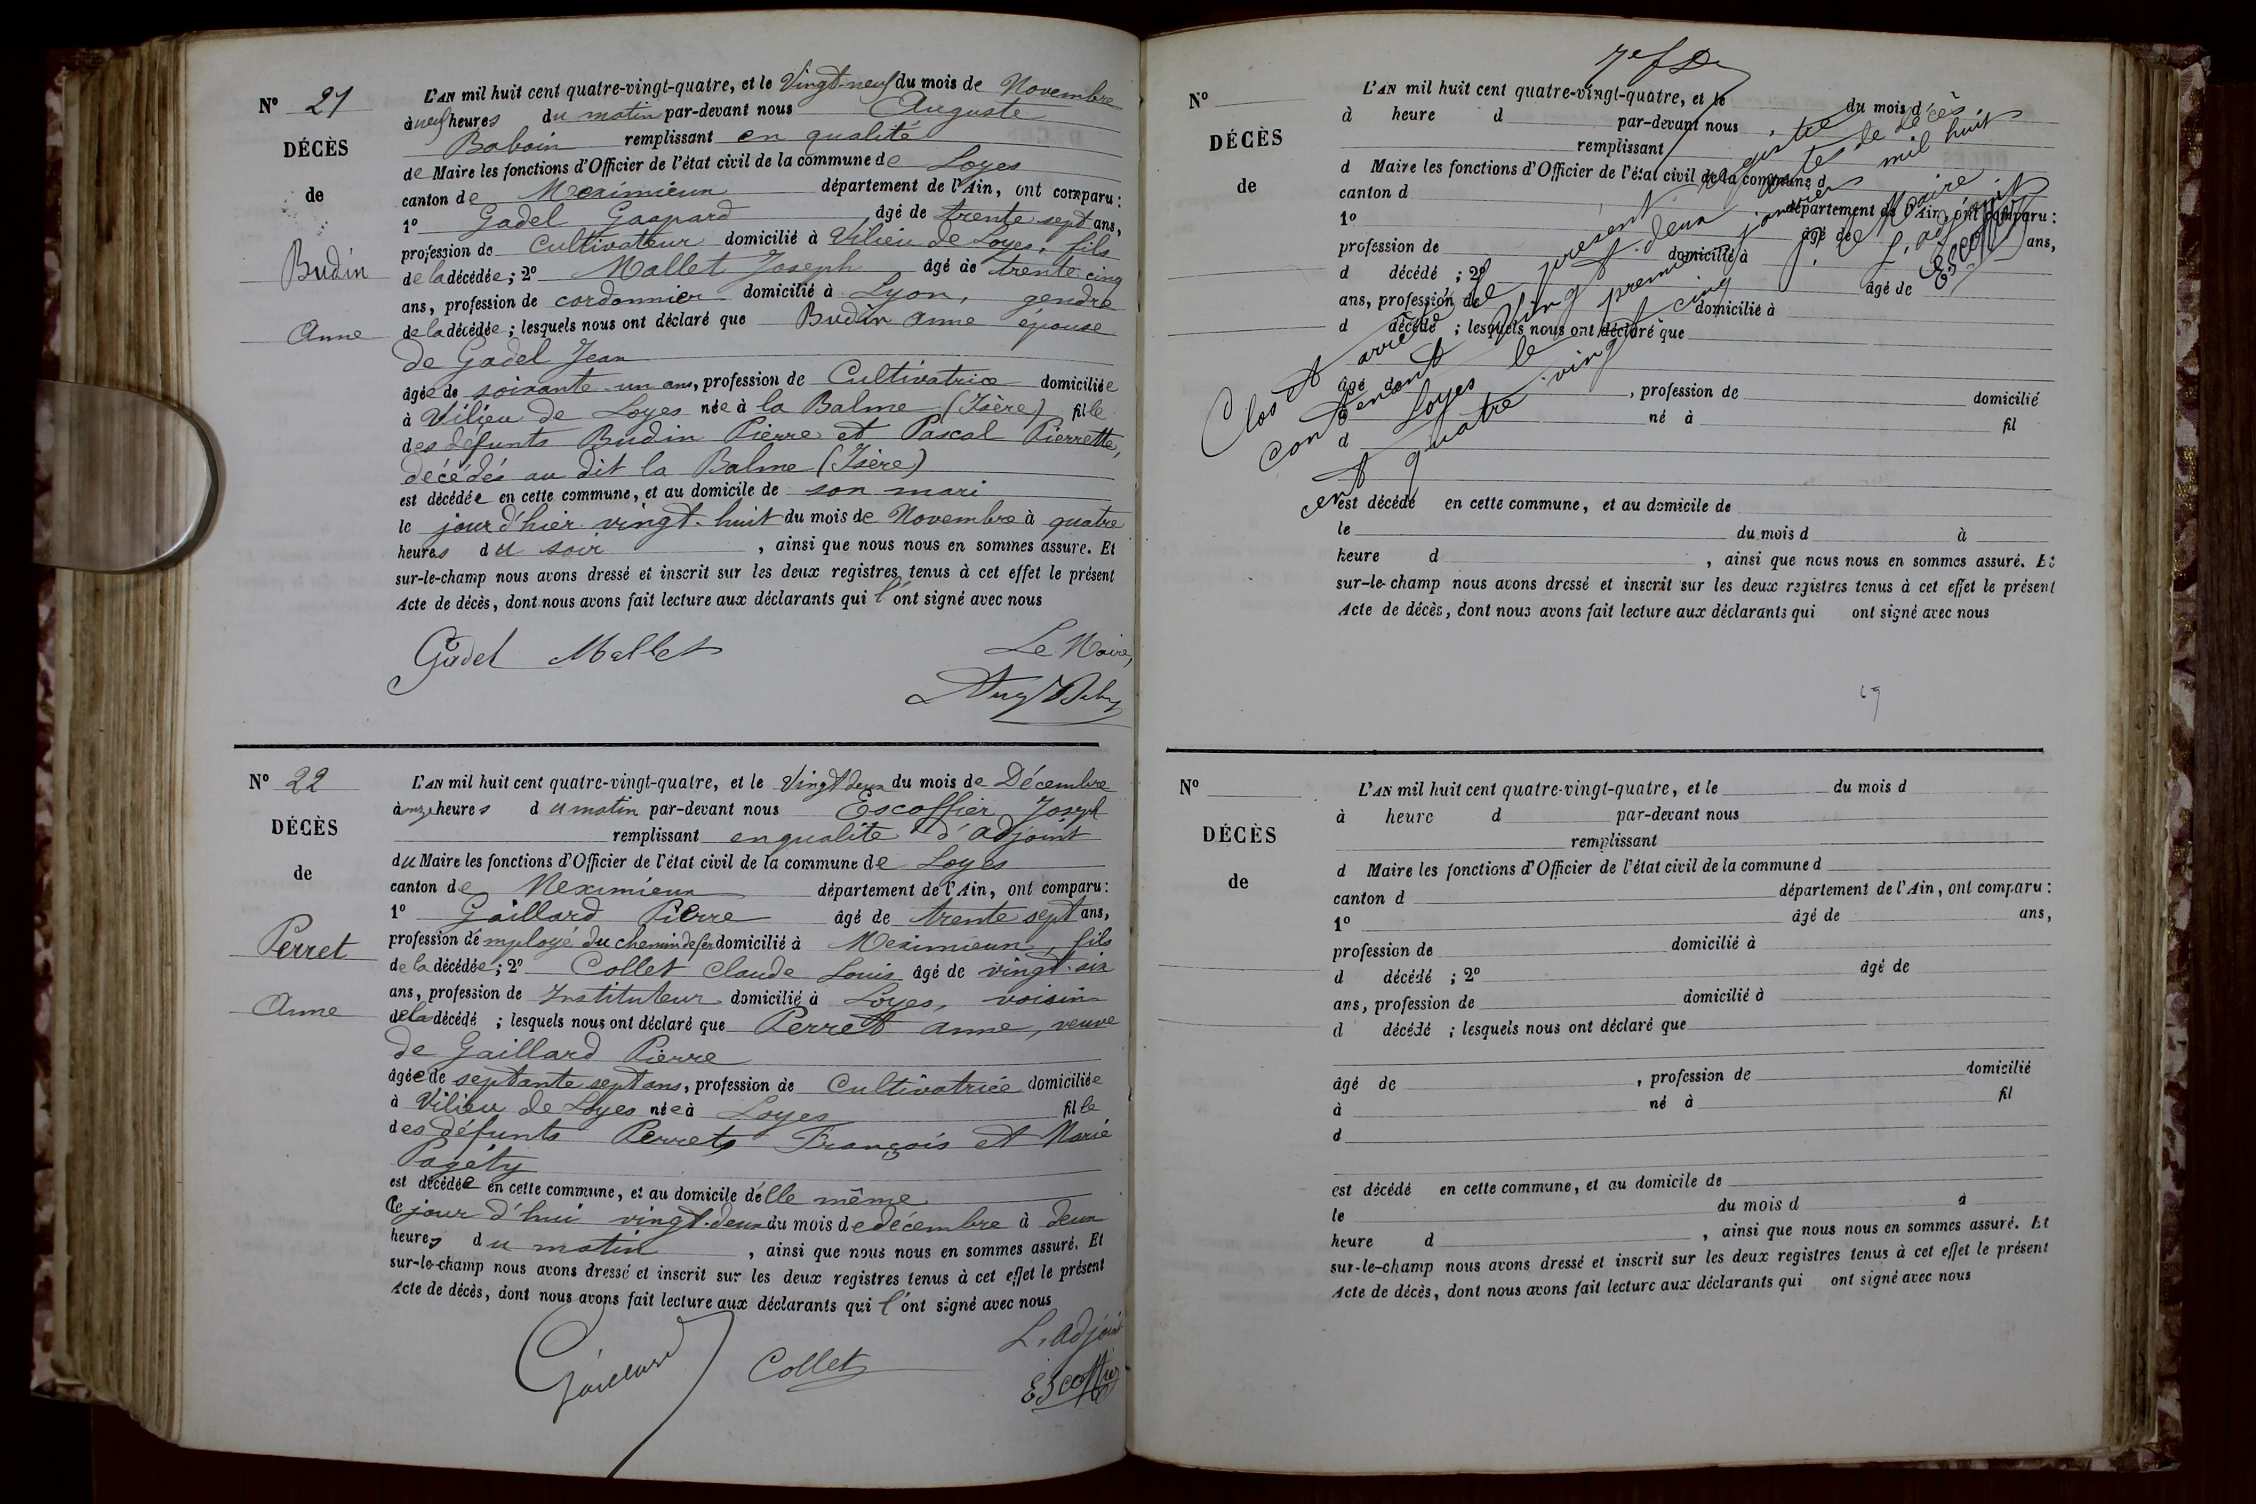 N° 21
DÉCÈS
de
Budin
Anne
L'AN mil huit cent quatre-vingt-quatre, et le Vingt-neuf du mois de Novembre
à neuf heures du matin par-devant nous Auguste
Baboin remplissant en qualité
de Maire les fonctions d'Officier de l'état civil de la commune de Loyes
canton de Meximieux département de l'Ain, ont comparu :
1° Gadel Gaspard âgé de trente sept ans,
profession de Cultivateur domicilié à Vilieu de Loyes, fils
de la décédée ; 2° Mallet Joseph âgé de trente cinq
ans, profession de cordonnier domicilié à Lyon, gendre
de la décédée ; lesquels nous ont déclaré que Budin Anne épouse
de Gadel Jean
âgée de soixante-un ans, profession de Cultivatrice domiciliée
à Vilieu de Loyes née à la Balme (Isère) fille
des défunts Budin Pierre et Pascal Pierrette,
décédés au dit la Balme (Isère)
est décédée en cette commune, et au domicile de son mari
le jour d'hier vingt-huit du mois de Novembre à quatre
heures du soir , ainsi que nous nous en sommes assuré. Et
sur-le-champ nous avons dressé et inscrit sur les deux registres tenus à cet effet le présent
Acte de décès, dont nous avons fait lecture aux déclarants qui l'ont signé avec nous
Gadel Mallet
Le Maire,
N° 22
DÉCÈS
de
Perret
Anne
L'AN mil huit cent quatre-vingt-quatre, et le Vingt deux du mois de Décembre
à onze heures du matin par-devant nous Escoffier Joseph
remplissant en qualité d'adjoint
du Maire les fonctions d'Officier de l'état civil de la commune de Loyes
canton de Meximieux département de l'Ain, ont comparu :
1° Gaillard Pierre âgé de trente sept ans,
profession d'employé du chemin de fer domicilié à Meximieux, fils
de la décédée ; 2° Collet Claude Louis âgé de vingt-six
ans, profession de Instituteur domicilié à Loyes, voisin
de la décédé ; lesquels nous ont déclaré que Perret Anne, veuve
de Gaillard Pierre
âgée de septante sept ans, profession de Cultivatrice domiciliée
à Vilieu de Loyes née à Loyes fille
des défunts Perret François et Marie
Pagéty
est décédée en cette commune, et au domicile d'elle même
Ce jour d'hui vingt-deux du mois de décembre à deux
heures du matin , ainsi que nous nous en sommes assuré. Et
sur-le-champ nous avons dressé et inscrit sur les deux registres tenus à cet effet le présent
Acte de décès, dont nous avons fait lecture aux déclarants qui l'ont signé avec nous
Gaillard Collet
L'adjoint
Escoffier
N°
DÉCÈS
de
L'AN mil huit cent quatre-vingt-quatre, et le du mois d
à heure d par-devant nous
remplissant
d Maire les fonctions d'Officier de l'état civil de la commune d
canton d département de l'Ain, ont comparu :
1° âgé de ans,
profession de domicilié à
d décédé ; 2° âgé de
ans, profession de domicilié à
d décédé ; lesquels nous ont déclaré que
âgé de , profession de domicilié
à né à fil
d
est décédé en cette commune, et au domicile de
le du mois d à
heure d , ainsi que nous nous en sommes assuré. Et
sur-le-champ nous avons dressé et inscrit sur les deux registres tenus à cet effet le présent
Acte de décès, dont nous avons fait lecture aux déclarants qui ont signé avec nous
Clos et arrêté le présent registre
contenant vingt-deux actes de décès
Loyes le premier janvier mil huit
cent quatre-vingt cinq
P. le Maire
L'adjoint
Escoffier
69
N°
DÉCÈS
de
L'AN mil huit cent quatre-vingt-quatre, et le du mois d
à heure d par-devant nous
remplissant
d Maire les fonctions d'Officier de l'état civil de la commune d
canton d département de l'Ain, ont comparu :
1° âgé de ans,
profession de domicilié à
d décédé ; 2° âgé de
ans, profession de domicilié à
d décédé ; lesquels nous ont déclaré que
âgé de , profession de domicilié
à né à fil
d
est décédé en cette commune, et au domicile de
le du mois d à
heure d , ainsi que nous nous en sommes assuré. Et
sur-le-champ nous avons dressé et inscrit sur les deux registres tenus à cet effet le présent
Acte de décès, dont nous avons fait lecture aux déclarants qui ont signé avec nous